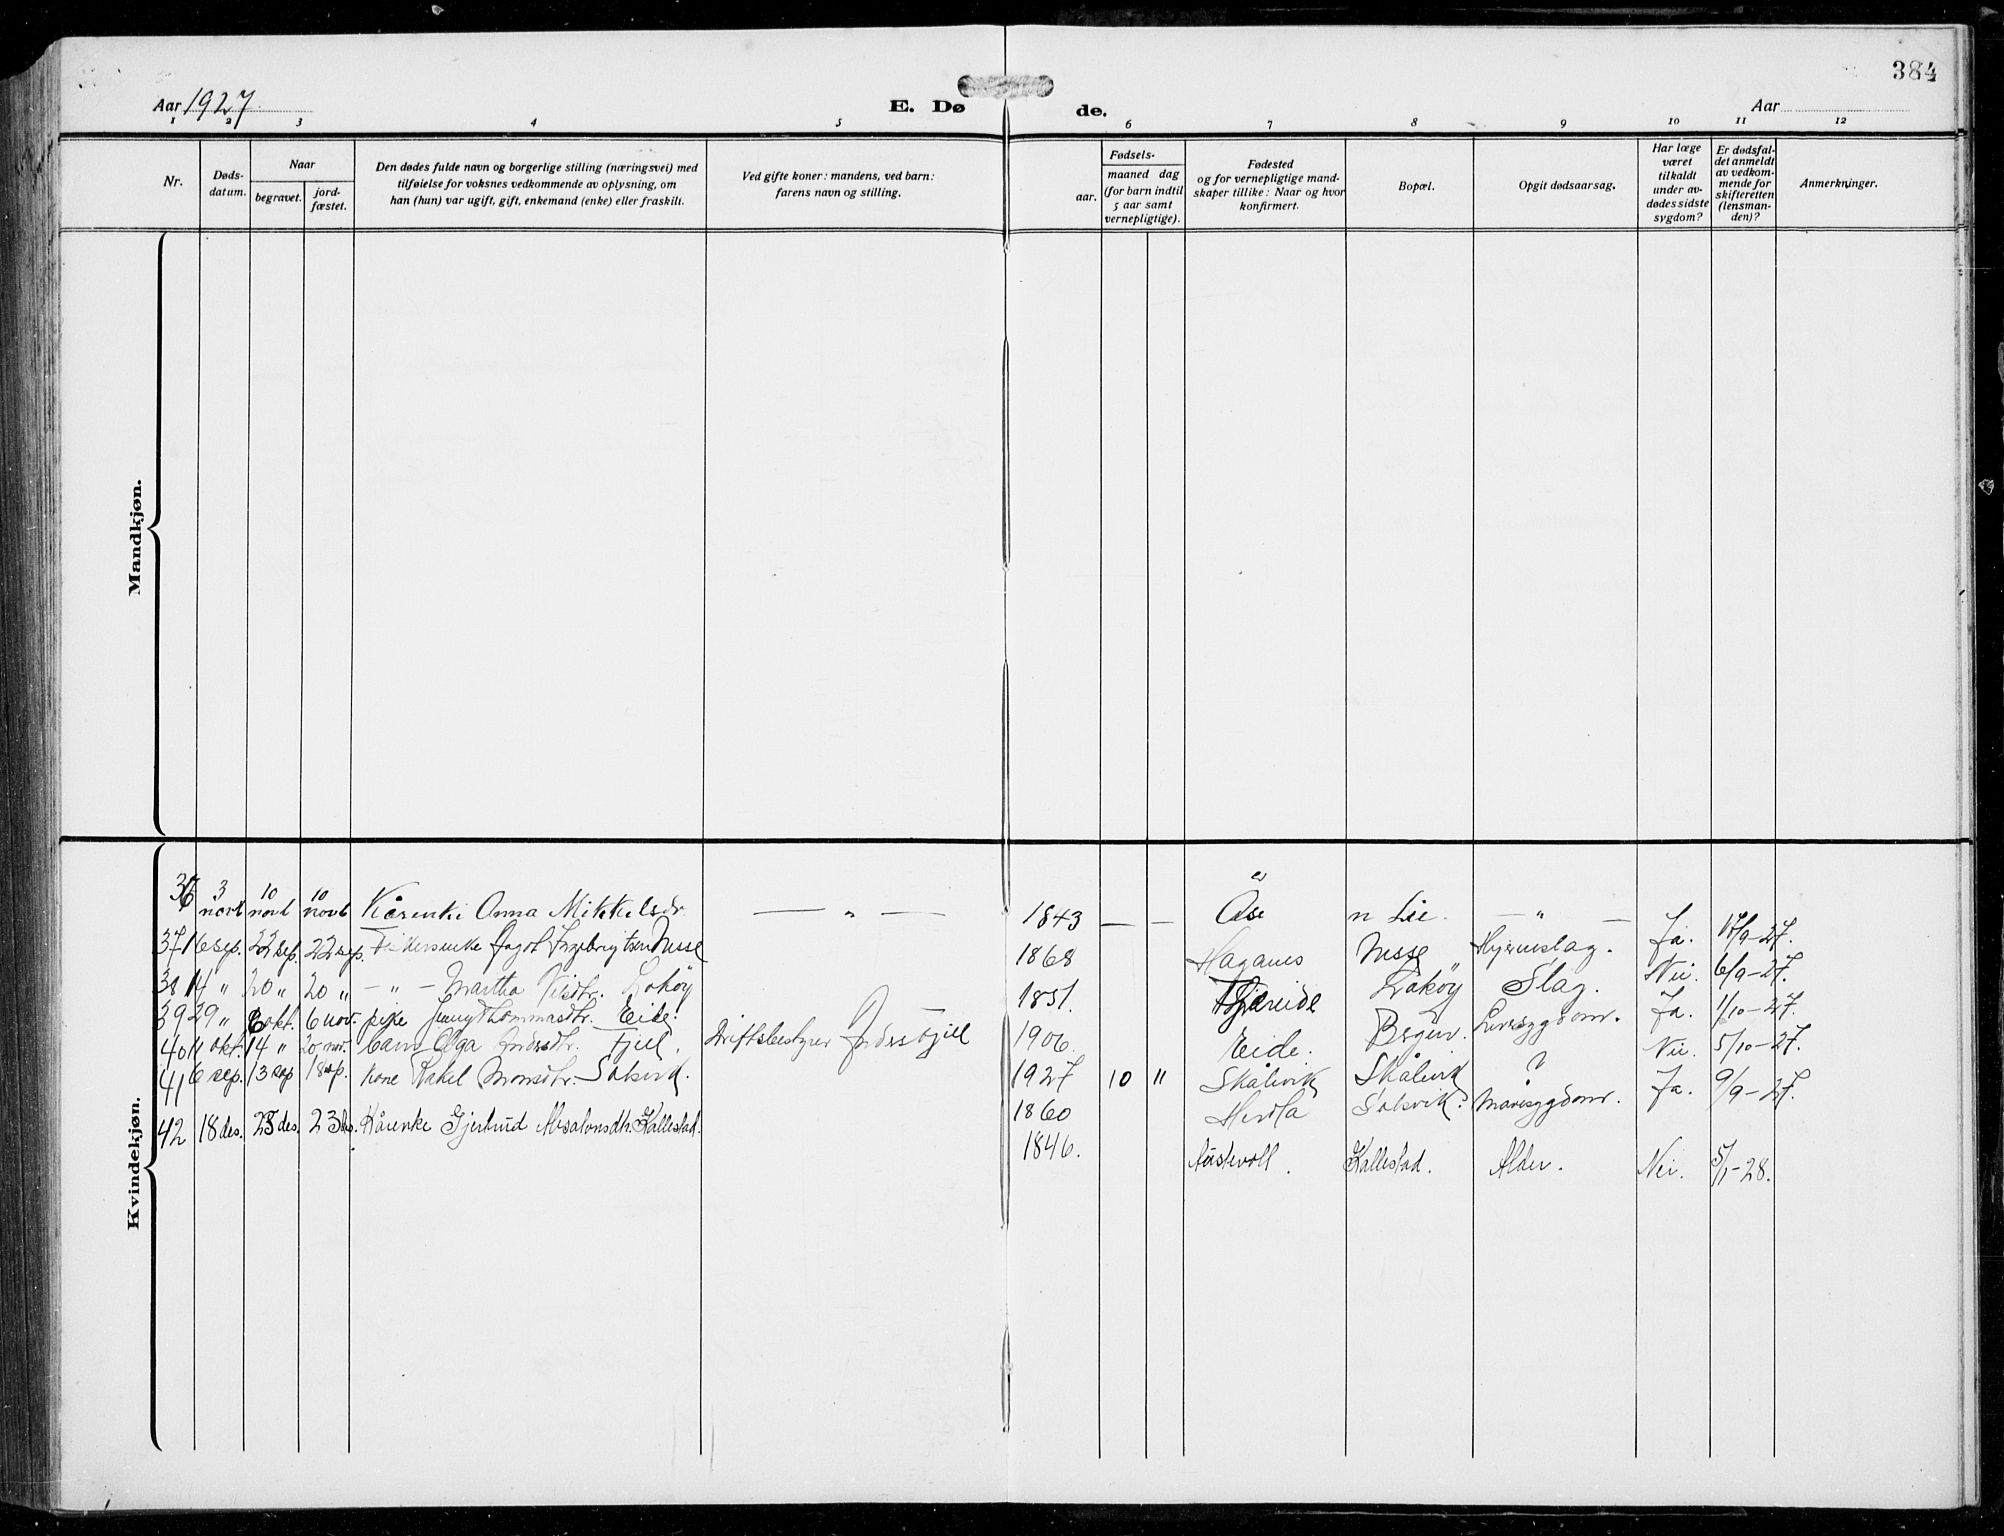 384
Aar 1927
E. Dø
de.
Aar
1 2 3 4 5 6 7 8 9 10 11 12
Nr.
Døds-
datum.
Naar
begravet.
jord-
fæstet.
Den dødes fulde navn og borgerlige stilling (næringsvei) med
tilføielse for voksnes vedkommende av oplysning, om
han (hun) var ugift, gift, enkemand (enke) eller fraskilt.
Ved gifte koner: mandens, ved barn:
farens navn og stilling.
Fødsels-
aar.
maaned dag
(for barn indtil
5 aar samt
vernepligtige).
Fødested
og for vernepligtige mand-
skaper tillike: Naar og hvor
konfirmert.
Bopæl.
Opgit dødsaarsag.
Har læge
været
tilkaldt
under av-
dødes sidste
sygdom?
Er dødsfal-
det anmeldt
av vedkom-
mende for
skifteretten
(lensman-
den)?
Anmerkninger.
Mandkjøn.
Kvindekjøn.
36 3 novb 10 novb 10 novb Kårenke Anna Mikkelsdr. — " — 1843 — — Åse n Lie. — " — Ja. 17/9-27.
37 16 sep. 22 sep. 22 sep. Ingebrigtsen Nesse 1868 Haganes Nesse Hjerneslag. Nei 6/9-27.
38 14 " 20 " 20 " — " — Martha Nilsdtr. Lokøy 1851. Lokøy Slag. Ja. 1/10-27.
39 29 " 6 okt. 6 nov. pike Jenny Thommasdtr. Eide. 1906. Eide. Bergen. Nei. 5/10-27.
40 11 okt. 14 " 20 nov. barn Olga Andersdtr. Fjell. Driftsbestyrer Anders Fjell 1927 10 " Skålvik Skålvik ? Ja. 9/9-27.
41 6 sep. 13 sep 18 sp. Kone Rakel Monsdtr. Solsvik. 1860 Herdla Solsvik. Mavesygdom.
42 18 des. 23 des. 23 des. Kårenke Gjertrud Absalonsdtr. Kallestad. 1846. Austevoll. Kallestad. Alder. Nei. 5/1-28.